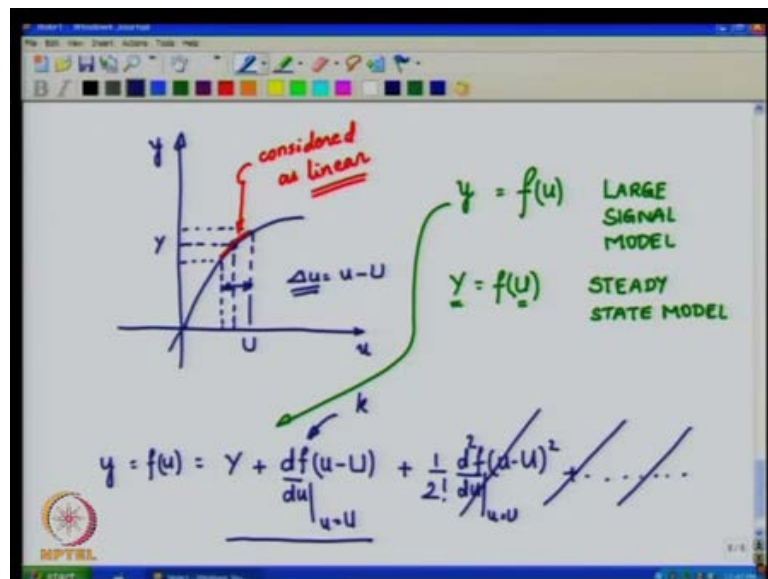 Note1 - Windows Journal
File Edit View Insert Actions Tools Help
B I
y
considered
as linear
Y
Δu = u - U
U
u
y = f(u) LARGE
SIGNAL
MODEL
Y = f(U) STEADY
STATE MODEL
k
y = f(u) = Y + df/du|u=U (u-U) + 1/2! d²f/du|u=U (u-U)² + ........
NPTEL
start